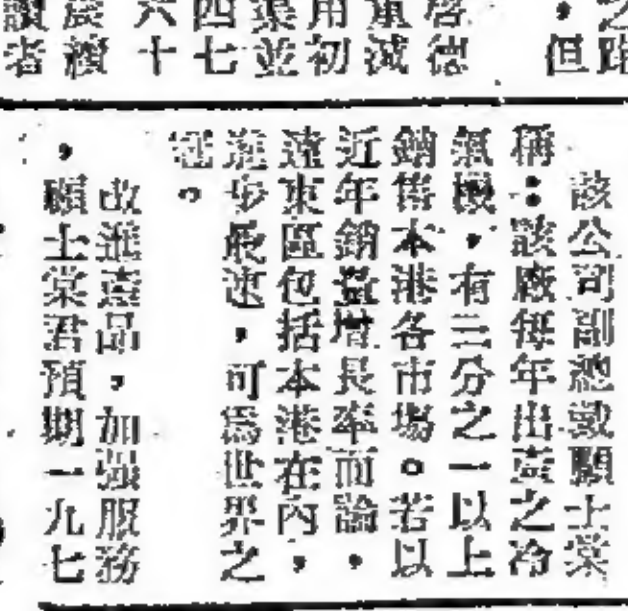 之路
，但
啓德
量減
用初
渠並
四七
六十
讀者
該公司副總裁顧士棠
稱：該廠每年出產之冷
氣機，有三分之一以上
銷售本港各市場。若以
近年銷量增長率而論，
遠東區包括本港在內，
進步最速，可爲世界之
冠。
改進產品，加强服務
，顧士棠君預期一九七